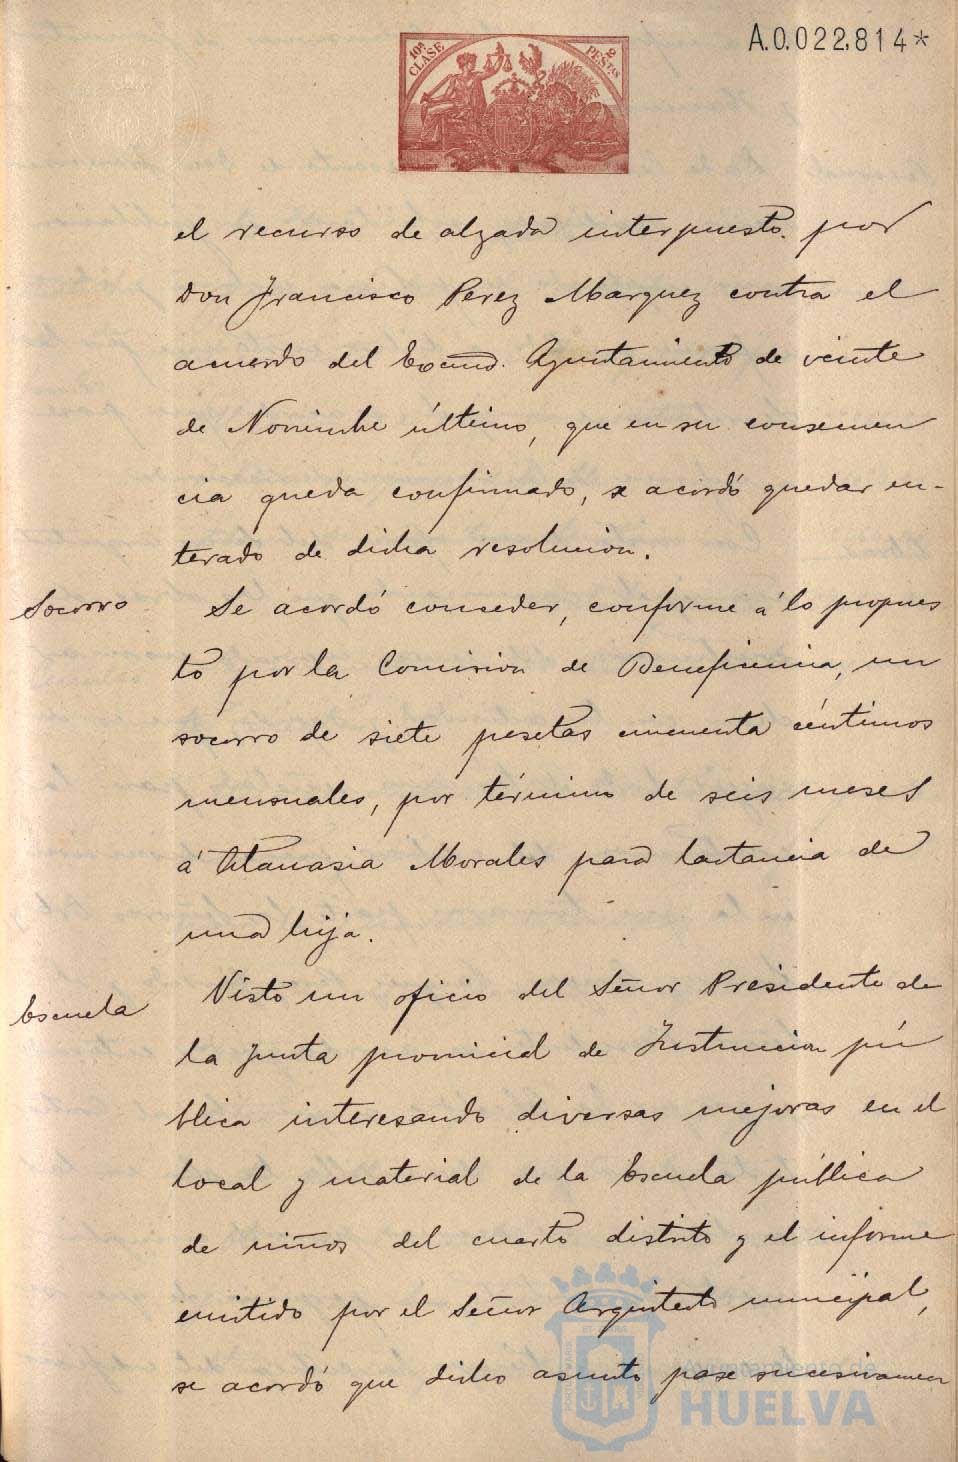 A.0.022.814*
10ª CLASE
2 PESTAS
el recurso de alzada interpuesto por
Don Francisco Perez Marquez contra el
acuerdo del Excmo. Ayuntamiento de veinte
de Noviembre último, que en su consecuen
cia queda confirmado, se acordó quedar en-
terado de dicha resolucion.
Socorro
Se acordó conceder, conforme á lo propues
to por la Comision de Beneficencia, un
socorro de siete pesetas cincuenta céntimos
mensuales, por término de seis meses
á Atanasia Morales para lactancia de
una hija.
Escuela
Visto un oficio del Señor Presidente de
la Junta provincial de Instruccion pú
blica interesando diversas mejoras en el
local y material de la Escuela pública
de niños del cuarto distrito y el informe
emitido por el Señor Arquitecto municipal,
se acordó que dicho asunto pase sucesivamen
Ayuntamiento de
HUELVA